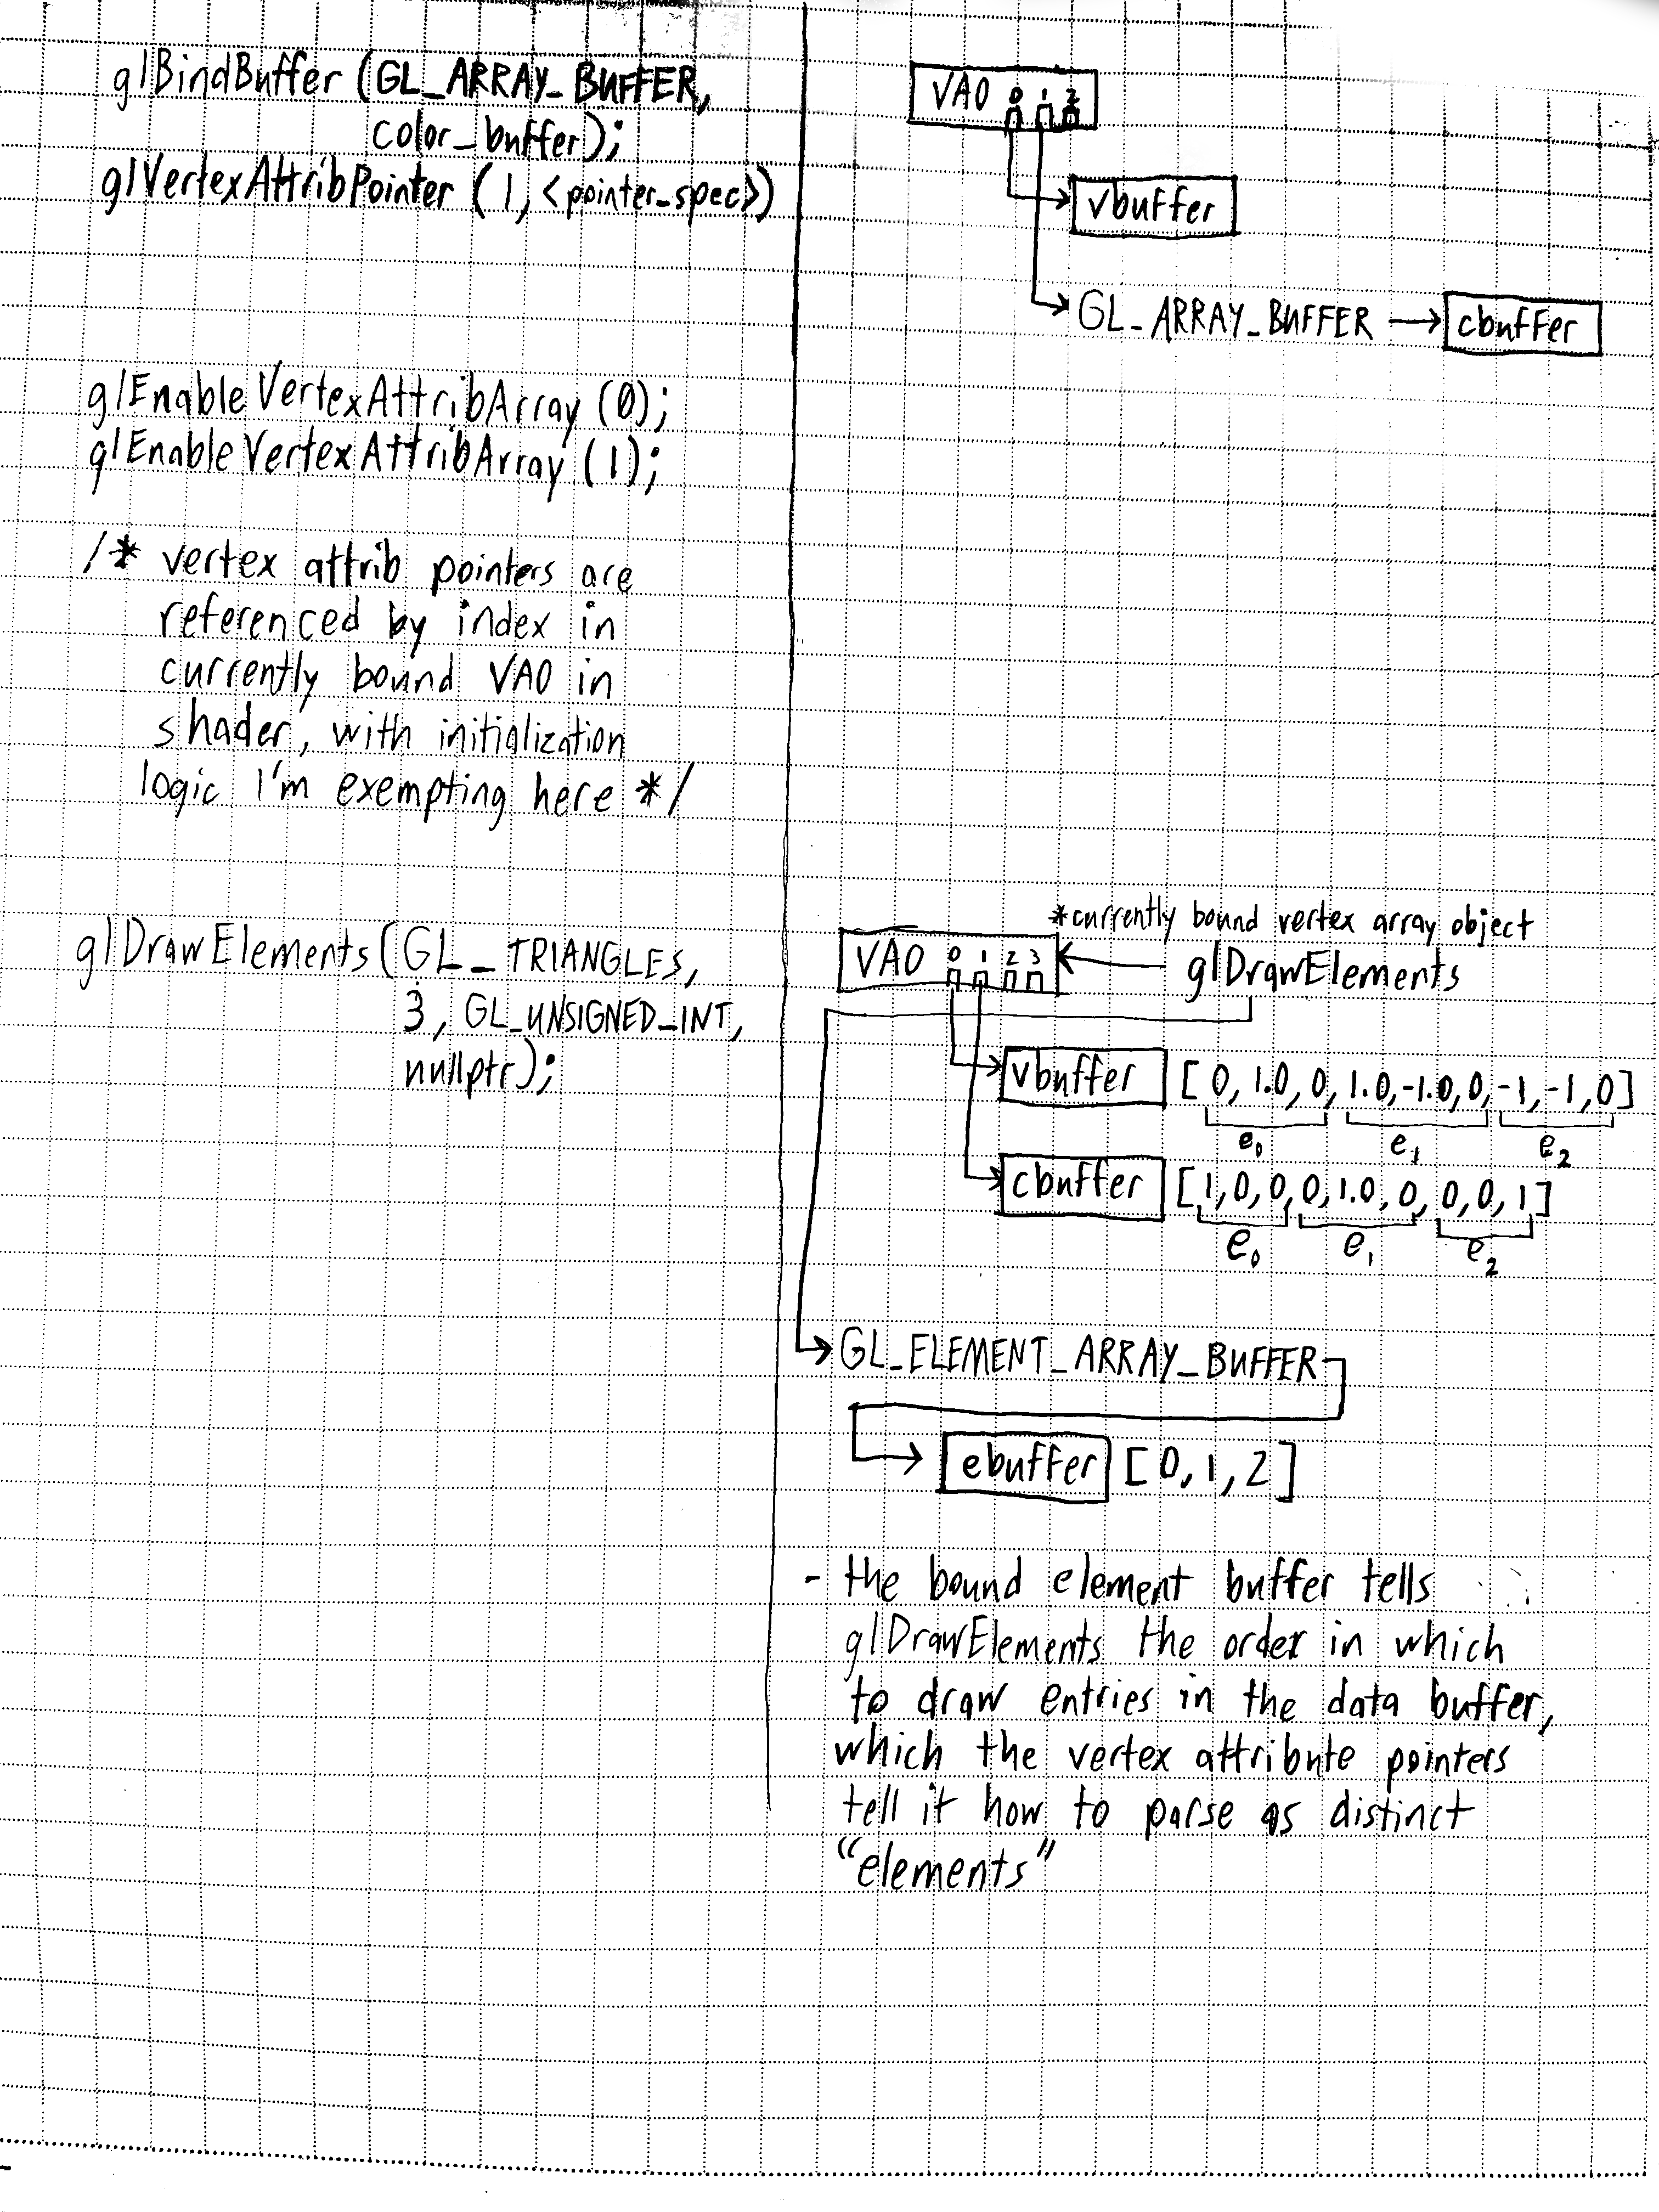 glBindBuffer (GL_ARRAY_BUFFER,
color_buffer);
glVertexAttribPointer (1, <pointer_spec>)
glEnableVertexAttribArray (0);
glEnableVertexAttribArray (1);
/* vertex attrib pointers are
referenced by index in
currently bound VAO in
shader, with initialization
logic I'm exempting here */
glDrawElements (GL_TRIANGLES,
3, GL_UNSIGNED_INT,
nullptr);
VAO 0 1 2
vbuffer
GL_ARRAY_BUFFER → cbuffer
*currently bound vertex array object
VAO 0 1 2 3 ← glDrawElements
vbuffer [0, 1.0, 0, 1.0, -1.0, 0, -1, -1, 0]
e₀ e₁ e₂
cbuffer [1, 0, 0, 0, 1.0, 0, 0, 0, 1]
e₀ e₁ e₂
GL_ELEMENT_ARRAY_BUFFER
ebuffer [0, 1, 2]
- the bound element buffer tells
glDrawElements the order in which
to draw entries in the data buffer,
which the vertex attribute pointers
tell it how to parse as distinct
"elements"